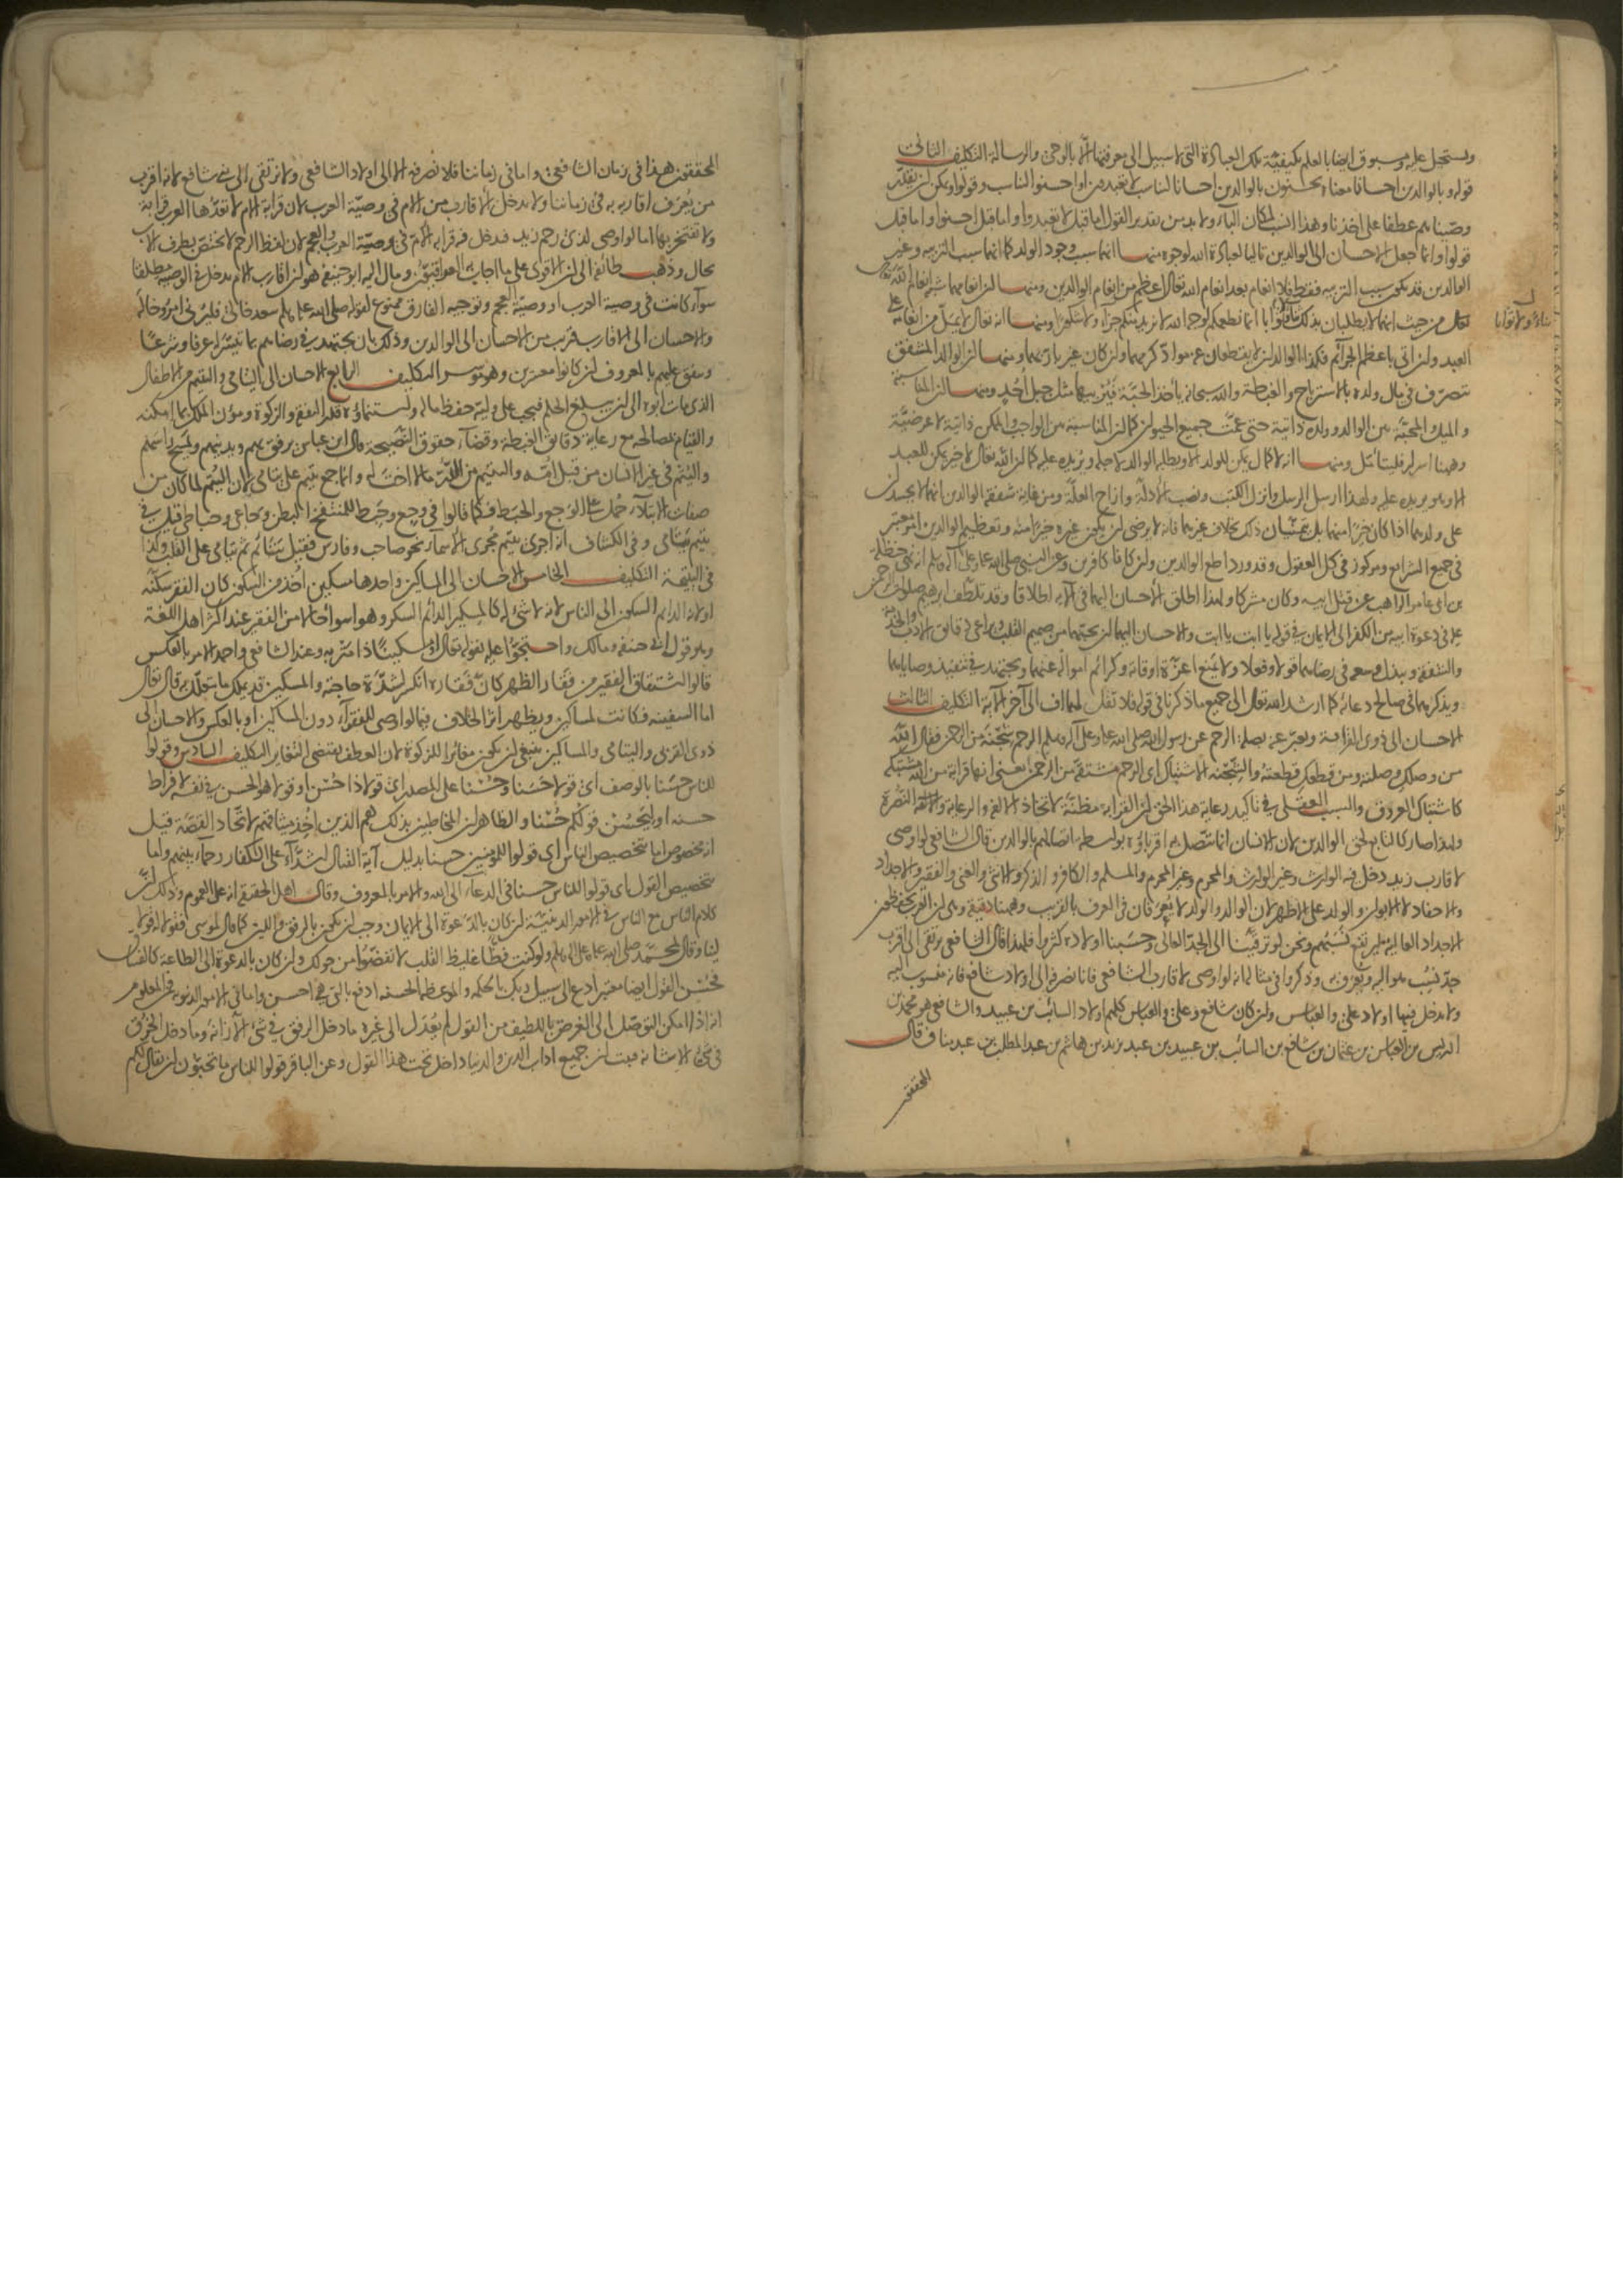 ويستحيل عليه وسبوق ايضا بالعلم بكيفية تلك العبادة التى لا سبيل الى معرفتها الا بالوحى والرسالة التكليف الثانى
قوله وبالوالدين احسانا معناه يحسنون بالوالدين احسانا ليناسب لا تعبدون او احسنوا ليناسب وقولوا ويمكن ان يقدر
وصيناهم عطفا على اخذنا وهذا انسب لمكان الباء ولا بد من تقدير القول اما قبل لا تعبدوا واما قبل احسنوا واما قبل
قولوا وانما جعل الاحسان الى الوالدين تاليا لعبادة الله لوجوه منها انهما سبب وجود الولد كما انهما سبب التربية وغير
الوالدين قد يكون سبب التربية فقط فلا انعام بعد انعام الله تعالى اعظم من انعام الوالدين ومنها ان انعامهما شبه انعام الله تعالى
من حيث انهما لا يطلبان بذلك ثناء ولا ثوابا انما نطعمكم لوجه الله لا نريد منكم جزاء ولا شكورا ومنها انه تعالى لا يمل من انعامه على
العبد ولو اتى باعظم الجرائم فكذا الوالدان لا يقطعان عنه مواد كرمهما وان كان غير بار بهما ومنها ان الوالد المشفق
يتصرف فى مال ولده بالاسترباح والغبطة والله سبحانه يأخذ الحبة فيربيها مثل جبل احد ومنها ان المناسبة
والميل والمحبة بين الوالد وولده ذاتية حتى عمت جميع الحيوان كما ان المناسبة بين الواجب والممكن ذاتية لا عرضية
وههنا اسرار فليتأمل ومنها انه لا كمال يمكن للولد الا ويطلبه الوالد لاجله ويريده عليه كما ان الله تعالى لا خير يمكن للعبد
الا وهو يريده عليه ولهذا ارسل الرسل وانزل الكتب ونصب الادلة وازاح العلة ومن غاية شفقة الوالدين انهما لا يحسدان
على ولدهما اذا كان خيرا منهما بل يتمنيان ذلك بخلاف غيرهما فانه لا يرضى ان يكون غيره خيرا منه وتعظيم الوالدين امر معتبر
فى جميع الشرايع ومركوز فى كل العقول وقد ورد اطع الوالدين وان كانا كافرين وعن النبى صلى الله عليه وعلى آله وسلم انه نهى حنظلة
بن ابى عامر الراهب عن قتل ابيه وكان مشركا ولهذا اطلق الاحسان اليهما فى الآية اطلاقا وقد تلطف ابرهيم صلوات الرحمن
عليه فى دعوة ابيه من الكفر الى الايمان فى قوله يا ابت يا ابت والاحسان اليهما ان يحبهما من صميم القلب ويراعى دقايق الادب والخدمة
والشفقة ويبذل وسعه فى رضاهما قولا وفعلا ولا يمنع اعزة اوقاته وكرائم امواله عنهما ويجتهد فى تنفيذ وصاياهما
ويذكرهما فى صالح دعائه كما ارشد الله تعالى الى جميع ما ذكرنا فى قوله فلا تقل لهما اف الى آخر الآية التكليف الثالث
الاحسان الى ذوى القرابة ويعبر عنه بصلة الرحم عن رسول الله صلى الله عليه وعلى آله وسلم الرحم شجنة من الرحمن فقال الله
من وصلك وصلته ومن قطعك قطعته والشجنة الاشتباك اى الرحم مشتقة من الرحمن يعنى انها قرابة من الله مشتبكة
كاشتباك العروق والسبب العقلى فى تاكيد رعاية هذا الحق ان القرابة مظنة الاتحاد والالفة والرعاية والنصرة
ولهذا صار كالتابع لحق الوالدين لان الانسان انما تتصل به اقرباؤه بواسطة اتصالهم بالوالدين قال الشافعى لو اوصى
لاقارب زيد دخل فيه الوارث وغير الوارث والمحرم وغير المحرم والمسلم والكافر والذكر والانثى والغنى والفقير والاجداد
والاحفاد لا الابوان والولد على الاظهر لان الوالد والولد لا يعرفان فى العرف بالقريب وههنا دقيقة وهى ان العرب يحفظون
الاجداد العالية فيرتفع نسبهم ونحن لو ترقينا الى الجد العالى وحسبنا اولاده كثروا فلهذا قال الشافعى يرتقى الى اقرب
جد ينسب هو اليه ويعرف به وذكروا فى مثاله انه لو اوصى لاقارب الشافعى فانا نصرفه الى اولاد شافع فانه منسوب اليه
ولا يدخل فيها اولاد على والعباس وان كان شافع وعلى والعباس كلهم اولاد السائب بن عبيد والشافعى هو محمد بن
ادريس بن العباس بن عثمان بن شافع بن السائب بن عبيد بن عبد يزيد بن هاشم بن عبد المطلب بن عبد مناف قال
المحققون
ثناء ولا ثوابا
المحققون هذا فى زمان الشافعى واما فى زماننا فلا نصرفه الا الى اولاد الشافعى ولا نرتقى الى بنى شافع لانه اقرب
من يعرف اقاربه به فى زماننا ولا يدخل الاقارب من الام فى وصية العرب لان قرابة الام لا تعدها العرب قرابة
ولا تفتخر بها اما لو اوصى لذى رحم زيد فيدخل فيه قرابة الام فى وصية العرب والعجم لان لفظ الرحم لا يختص بطرف الاب
بحال وذهب طائفة الى ان الاقوى على ما اجاب به العراقيون ومال اليه ابو حنيفة هو ان اقارب الام يدخل فى الوصية مطلقا
سواء كانت فى وصية العرب او وصية العجم وتوجيه الفارق ممنوع لقوله صلى الله عليه وسلم سعد خالى فليرنى امرؤ خاله
والاحسان الى الاقارب قريب من الاحسان الى الوالدين وذلك بان يجتهد فى رضاهم بما تيسر له عرفا وشرعا
وينفق عليهم بالمعروف ان كانوا معسرين وهو موسر التكليف الرابع الاحسان الى اليتامى واليتيم من الاطفال
الذى مات ابوه الى ان يبلغ الحلم فيجب على وليه حفظ ماله واستنماؤه قدر النفقة والزكوة ومؤن الملك بما امكنه
والقيام بمصالحه مع رعاية دقايق الغبطة وقضاء حقوق النصيحة قال ابن عباس يرفق بهم ويدنيهم ويمسح رأسهم
واليتم فى غير الانسان من قبل امه واليتيم من الدر ما لا اخت له وانما جمع يتيم على يتامى لان اليتم لما كان من
صفات الابتلاء حمل على الوجع والحبط فكما قالوا فى وجع وحبط للمنتفخ البطن وجاعى وحباطى قيل فى
يتيم يتامى وفى الكشاف انه اجرى يتيم مجرى الاسماء نحو صاحب وفارس فقيل يتائم ثم يتامى على القلب وكذا
فى اليتيمة التكليف الخامس الاحسان الى المساكين واحدها مسكين اخذ من السكون كان الفقر سكنه
او لانه الدايم السكون الى الناس لانه لا شئ له كالمسكير الدائم السكر وهو اسوأ حالا من الفقير عند اكثر اهل اللغة
وهو قول ابى حنيفة ومالك واحتجوا عليه بقوله تعالى او مسكينا ذا متربة وعند الشافعى واحمد الامر بالعكس
قالوا اشتقاق الفقير من فقار الظهر كان فقاره انكسر لشدة حاجته والمسكين قد يملك ما يتعلل به قال تعالى
اما السفينة فكانت لمساكين ويظهر اثر الخلاف فيما لو اوصى للفقراء دون المساكين او بالعكس والاحسان الى
ذوى القربى واليتامى والمساكين ينبغى ان يكون مغائرا للزكوة لان العطف يقتضى التغاير التكليف السادس وقولوا
للناس حسنا بالوصف اى قولا حسنا وحسنا على المصدر اى قولا ذا حسن او قولا هو الحسن فى نفسه لافراط
حسنه او ليحسن قولكم حسنا والظاهر ان المخاطبين بذلك هم الذين اخذ ميثاقهم لاتحاد القصة قيل
انه مخصوص اما بتخصيص الناس اى قولوا للمومنين حسنا بدليل آية القتال اشداء على الكفار رحماء بينهم واما
بتخصيص القول اى قولوا للناس حسنا فى الدعاء الى الله والامر بالمعروف وقال اهل الحقيقة انه على العموم وذلك ان
كلام الناس مع الناس فى الامور الدينية ان كان بالدعوة الى الايمان وجب ان يكون بالرفق واللين كما قال لموسى فقولا له قولا
لينا وقال لمحمد صلى الله عليه وعلى آله وسلم ولو كنت فظا غليظ القلب لانفضوا من حولك وان كان بالدعوة الى الطاعة كالفساق
فحسن القول ايضا معتبر ادع الى سبيل ربك بالحكمة والموعظة الحسنة ادفع بالتى هى احسن واما فى الامور الدنيوية فمن المعلوم
انه اذا امكن التوصل الى الغرض باللطيف من القول لم يعدل الى غيره ما دخل الرفق فى شئ الا زانه وما دخل الخرق
فى شئ الا شانه فثبت ان جميع اداب الدين والدنيا داخل تحت هذا القول وعن الباقر قولوا للناس ما تحبون ان يقال لكم